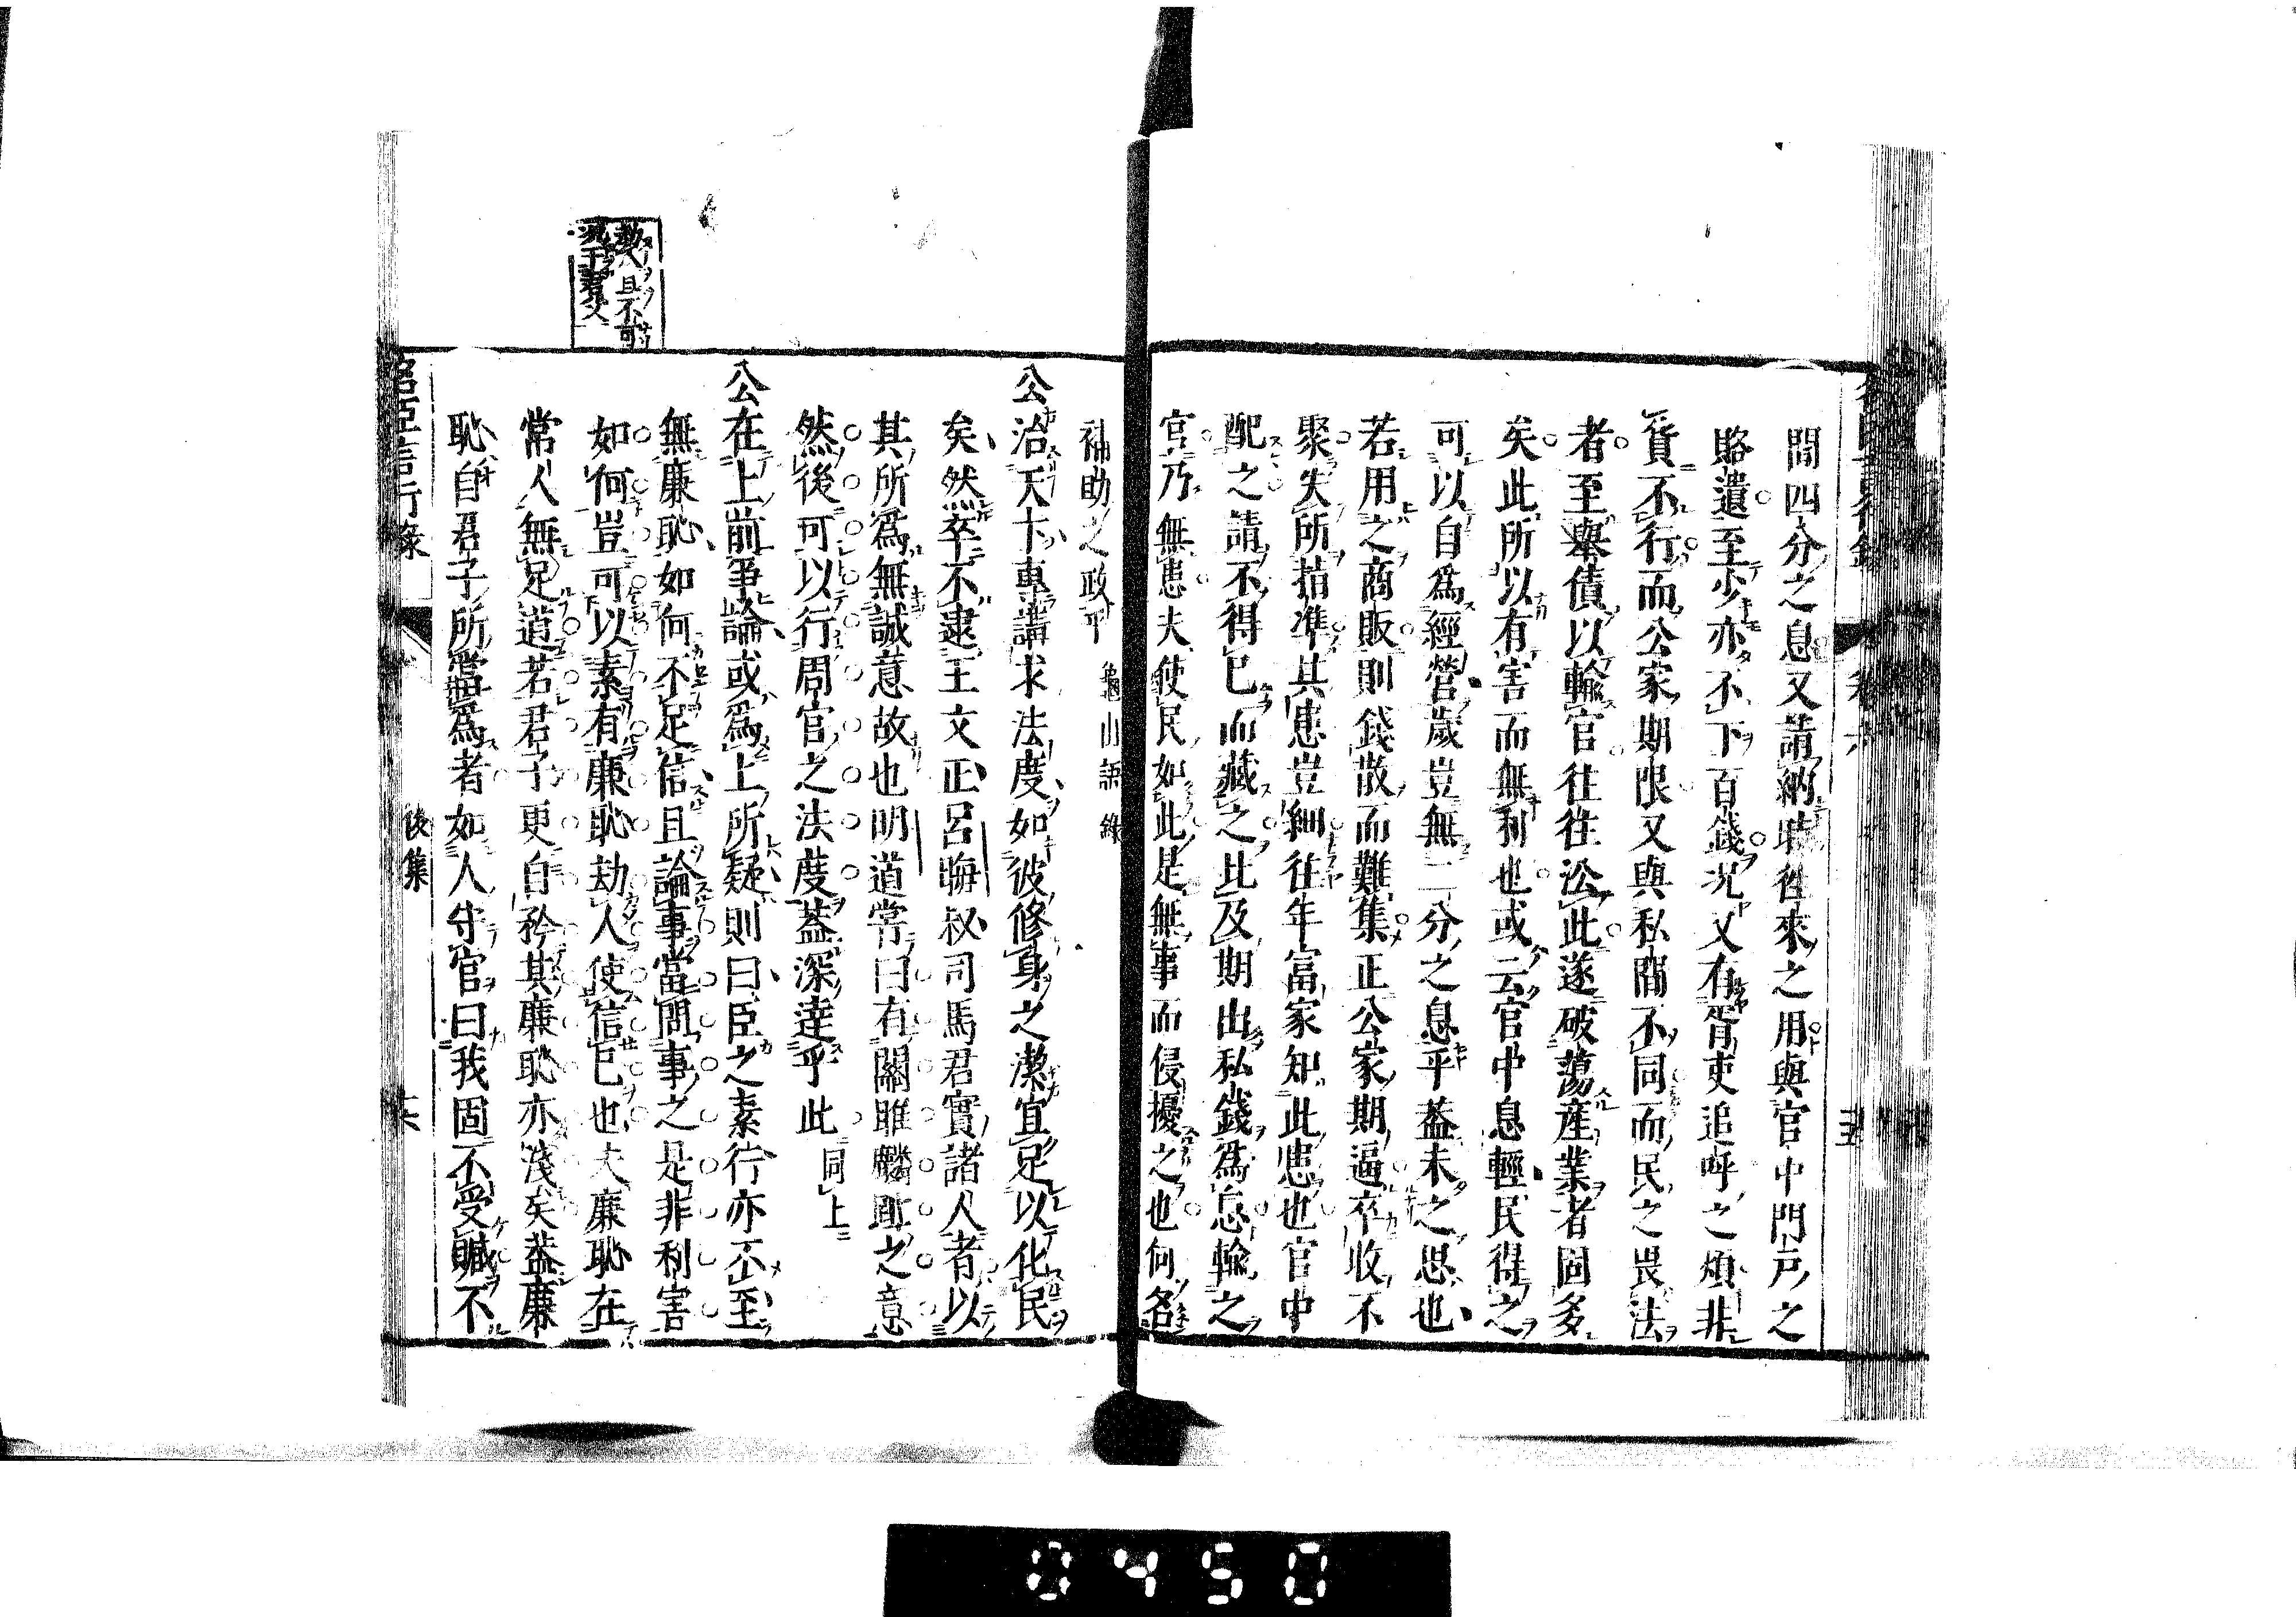 間四分之息又請納時徃來之用與官中門戸之
賂遺至少亦不下百錢况又有胥吏追呼之煩非
貨不行而公家期限又與私間不同而民之畏法
者至舉債以輸官往往訟此遂破蕩產業者固多
矣此所以有害而無利也或云官中息輕民得之
可以自爲經營歲豈無二分之息乎蓋未之思也
若用之商販則錢散而難集正公家期逼卒收不
聚失所指準其患豈細往年富家知此患也官中
配之請不得已而藏之比及期出私錢爲息輸之
官乃無患夫使民如此是無事而侵擾之也何名
補助之政乎 龜山語錄
公治天下專講求法度如彼修身之潔宜足以化民
矣然卒不逮王文正呂晦叔司馬君實諸人者以
其所爲無誠意故也明道嘗曰有關雎麟趾之意
然後可以行周官之法度蓋深達乎此 同上
公在上前爭論或爲上所疑則曰臣之素行亦不至
無廉恥如何不足信且論事當問事之是非利害
如何豈可以素有廉恥劫人使信已也夫廉恥在
常人無足道若君子更自矜其廉恥亦淺矣蓋廉
恥自君子所當爲者如人守官曰我固不受贓不
劫人且不可
况于君父
後集
卷六
0450